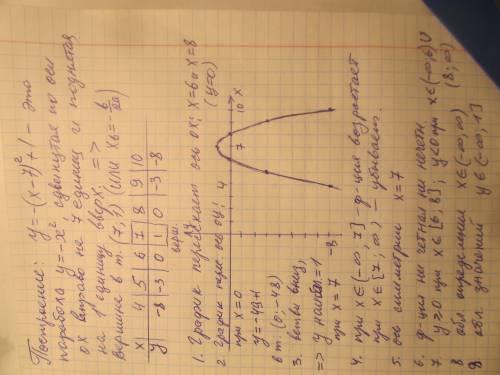 Построение: y = -(x-7)²+1 – это
парабола y = -x², сдвинутая по оси
ox вправо на 7 единиц и поднятая
на 1 единицу вверх. =>
вершине в т. (7; 1) (или x₆ = -b/2a)
x 4 5 6 7 8 9 10
y -8 -3 0 1 0 -3 -8
верш.
1. График пересекает ось ox: x=6 и x=8
(y=0)
2. График перес. ось oy:
при x=0
y=-49+1
в т. (0; -48)
3. ветви вниз,
=> y наиб. = 1
при x=7
4. при x∈(-∞; 7] – ф-ция возрастает
при x∈[7; ∞) – убывает.
5. ось симетрии x=7
6. ф-ция ни четная ни нечетн.
7. y≥0 при x∈[6; 8]; y<0 при x∈(-∞; 6)∪
(8; ∞)
8 обл. определения x∈(-∞; ∞)
9. обл. значений y∈(-∞; 1]
y
4
7
10
x
-8